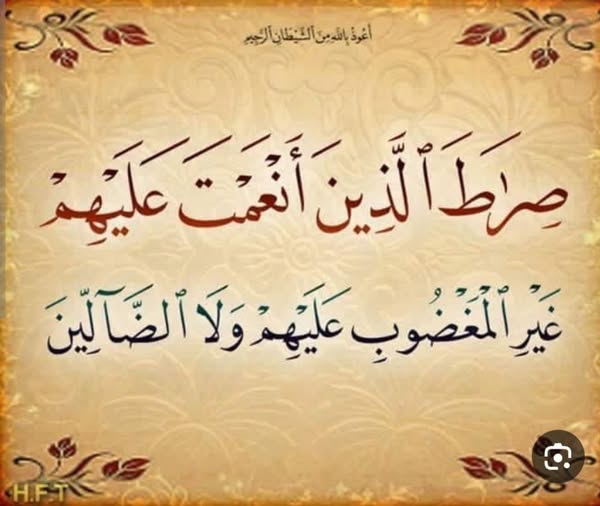 أعوذ بالله من ٱلشيطان ٱلرجيم
صِرَٰطَ ٱلَّذِينَ أَنْعَمْتَ عَلَيْهِمْ
غَيْرِ ٱلْمَغْضُوبِ عَلَيْهِمْ وَلَا ٱلضَّآلِّينَ
H.F.T